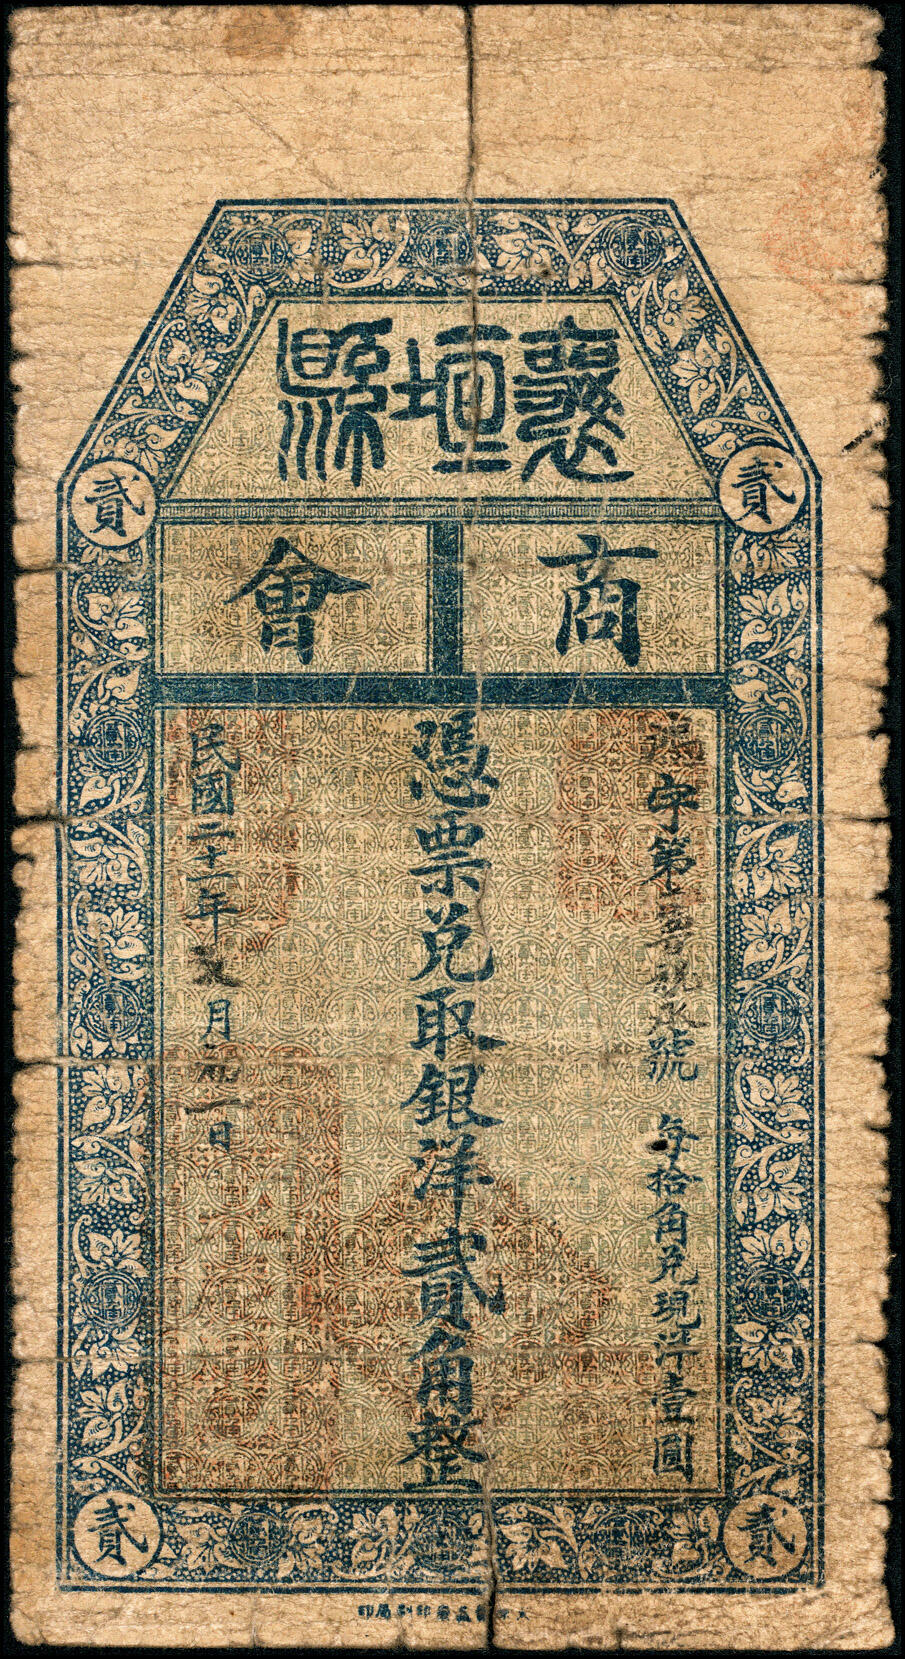 襄垣縣
貳
貳
商會
字第
號 每拾角兑現洋壹圓
憑票兑取銀洋貳角整
民國二十一年
月
一日
貳
貳